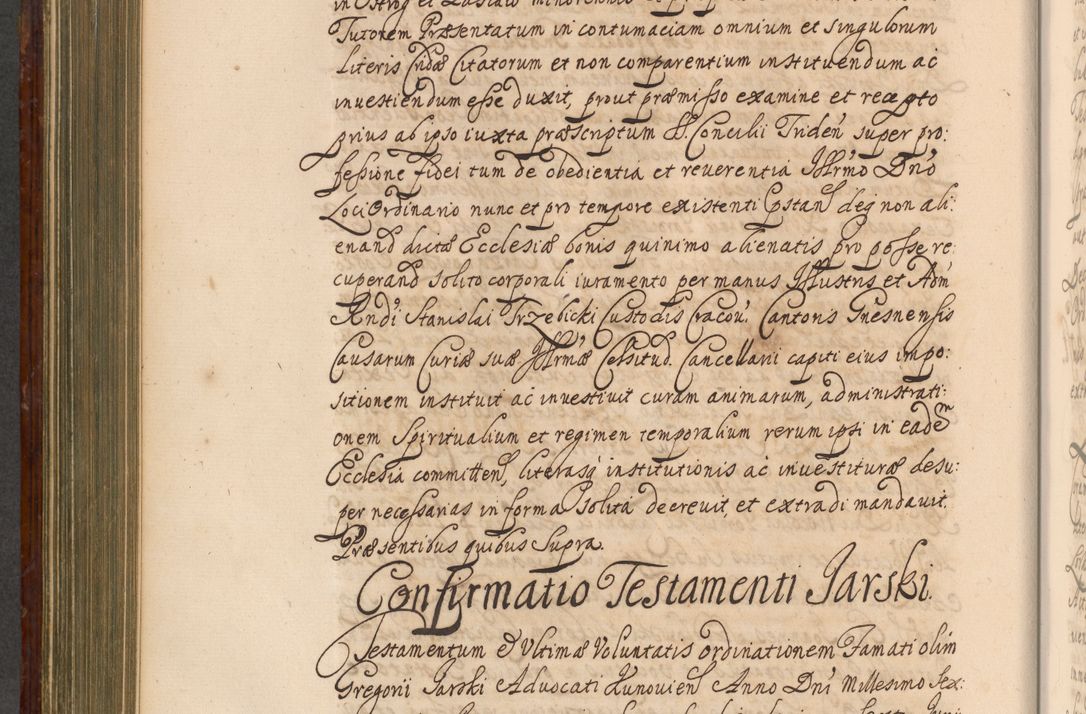 Tutorem Præsentatum in contumaciam omnium et singulorum
literis Cridæ Citatorum et non comparentium instituendum ac
investiendum esse duxit, prout præmisso examine et recepto
prius ab ipso iuxta præscriptum S. Concilii Triden̄ super pro:
fessione fidei tum de obedientia et reverentia Illr̄mo Dn̄o
Loci Ordinario nunc et pro tempore existenti Cpstan̄ deq́ non ali:
enand dictæ Ecclesiæ bonis quinimo alienatis pro posse re:
cuperand solito corporali iuramento per manus Illustris et Adm̄
Rn̄di Stanislai Trzebicki Custodis Cracov̄. Cantoris Gnesnensis
Causarum Curiæ suæ Illr̄mæ Celsitud. Cancellarii capiti eius impo:
sitionem instituit ac investivit curam animarum, administrati:
onem Spiritualium et regimen temporalium rerum ipsi in eadem
Ecclesia committen̄, literasq́ institutionis ac investituræ desu:
per necessarias in forma solita decrevit, et extradi mandavit.
Præsentibus quibus supra.
Confirmatio Testamenti Jarski.
Testamentum & Ultimæ Voluntatis ordinationem Famati olim
Gregorii Jarski Advocati Kunovien̄ Anno Dn̄i Millesimo Sex: